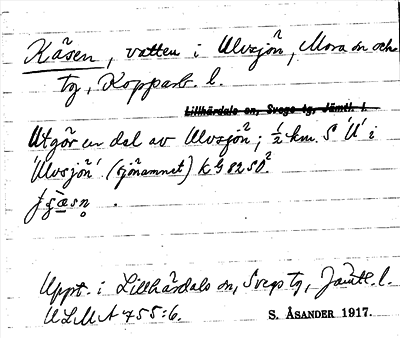 Kåsen, vatten i Ulvsjön, Mora sn och
tg, Kopparb. l.
Lillhärdals sn, Svegs tg, Jämtl. l.
Utgör en del av Ulvsjön²; ½ km. S 'U' i
'Ulvsjön' (sjönamnet) KG 82 SO².
Uppt. i Lillhärdals sn, Svegs tg, Jämtl. l.
ULMA 455:6.
S. ÅSANDER 1917.